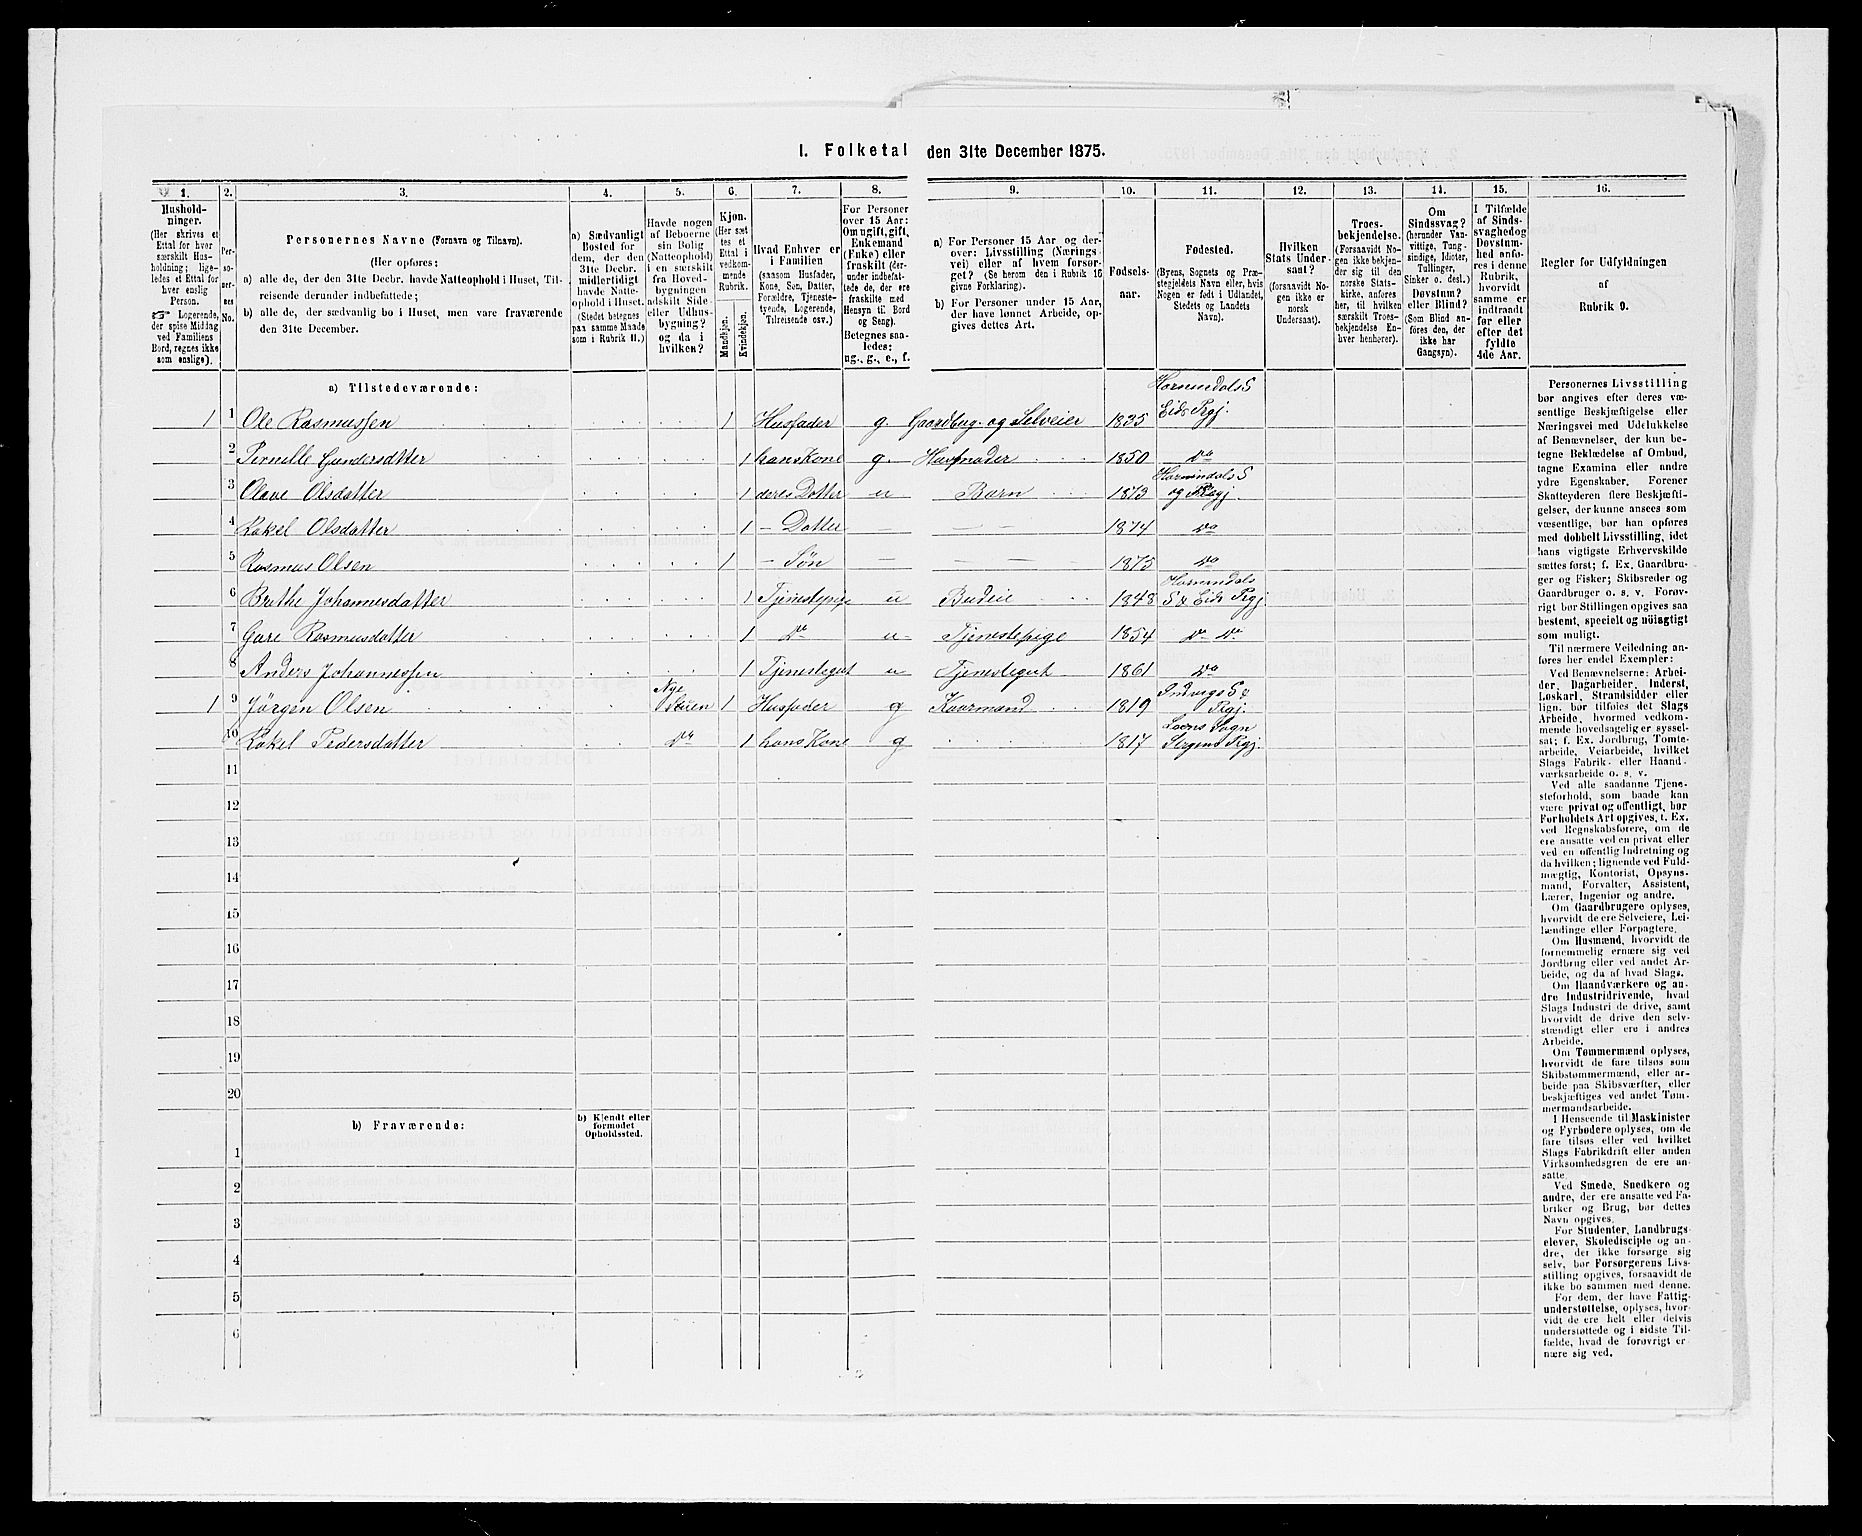 I. Folketal den 31te December 1875.
1. 2. 3. 4. 5. 6. 7. 8. 9. 10. 11. 12. 13. 14. 15. 16.
Husholdninger.
(Her skrives et
Ettal for hver
særskilt Hus-
holdning; lige-
ledes et Ettal for
hver enslig
Person.
Logerende,
der spise Middag
ved Familiens
Bord, regnes ikke
som enslige).
Per-
so-
ner-
nes
No.
Personernes Navne (Fornavn og Tilnavn).
(Her opføres:
a) alle de, der den 31te Decbr. havde Natteophold i Huset, Til-
reisende derunder indbefattede;
b) alle de, der sædvanlig bo i Huset, men vare fraværende
den 31te December.
a) Sædvanligt
Bosted for
dem, der den
31te Decbr.
midlertidigt
havde Natte-
ophold i Huset.
(Stedet betegnes
paa samme Maade
som i Rubrik 11.)
Havde nogen
af Beboerne
sin Bolig
(Natteophold)
i en særskilt
fra Hoved-
bygningen
adskilt Side-
eller Udhus-
bygning?
og da i
hvilken?
Kjøn.
(Her sæt-
tes et
Ettal i
vedkom-
mende
Rubrik.
Mandkjøn.
Kvindekjøn.
Hvad Enhver er
i Familien
(saasom Husfader,
Kone, Søn, Datter,
Forældre, Tjeneste-
tyende, Logerende,
Tilreisende osv.)
For Personer
over 15 Aar:
Om ugift, gift,
Enkemand
(Enke) eller
fraskilt (der-
under indbefat-
tede de, der ere
fraskilte med
Hensyn til Bord
og Seng).
Betegnes saa-
ledes:
ug., g., e., f.
a) For Personer 15 Aar og der-
over: Livsstilling (Nærings-
vei) eller af hvem forsør-
get? (Se herom den i Rubrik 16
givne Forklaring).
b) For Personer under 15 Aar,
der have lønnet Arbeide, op-
gives dettes Art.
Fødsels-
aar.
Fødested.
(Byens, Sognets og Præ-
stegjeldets Navn eller, hvis
Nogen er født i Udlandet,
Stedets og Landets
Navn).
Hvilken
Stats Under-
saat?
(forsaavidt No-
gen ikke er
norsk
Undersaat).
Troes-
bekjendelse.
(Forsaavidt No-
gen ikke bekjen-
der sig til den
norske Stats-
kirke, anføres
her, til hvilken
særskilt Troes-
bekjendelse En-
hver henhører).
Om
Sindssvag?
(herunder Van-
vittige, Tung-
sindige, Idioter,
Tullinger,
Sinker o. desl.)
Døvstum?
eller Blind?
(Som Blind an-
føres den, der
ikke har
Gangsyn).
I Tilfælde
af Sinds-
svaghed og
Døvstum-
hed anfø-
res i denne
Rubrik,
hvorvidt
samme er
indtraadt
før eller
efter det
fyldte
4de Aar.
Regler for Udfyldningen
af
Rubrik 9.
a) Tilstedeværende:
1 1 Ole Rasmussen 1 Husfader g. Gaardbrug. og Selveier 1835 Hornindals S Eids Prgj.
2 Pernille Gundersdatter 1 hans Kone g. Husmoder 1850 do
3 Olave Olsdatter 1 deres Datter u Barn 1873 Hornindals S og Prgj.
4 Rakel Olsdatter 1 — Datter — — — 1874 do
5 Rasmus Olsen 1 — Søn — — — 1875 do
6 Brithe Johannesdatter 1 Tjenestepige u Budeie 1848 Hornindals S & Eids Prgj
7 Gure Rasmusdatter 1 do u Tjenestepige 1854 do do
8 Anders Johannessen 1 Tjenestegut u Tjenestegut 1861 do
1 9 Jörgen Olsen Nye 1 Husfader g Kaarmand 1819 S & Prgj.
10 Rakel Pedersdatter do 1 hans Kone g 1817 Sogn Prgj.
11
12
13
14
15
16
17
18
19
20
b) Fraværende:
b) Kjendt eller
formodet
Opholdssted.
1
2
3
4
5
6
Personernes Livsstilling
bør angives efter deres væ-
sentlige Beskjæftigelse eller
Næringsvei med Udelukkelse
af Benævnelser, der kun be-
tegne Beklædelse af Ombud,
tagne Examina eller andre
ydre Egenskaber. Forener
Skatteyderen flere Beskjæfti-
gelser, der kunne ansees som
væsentlige, bør han opføres
med dobbelt Livsstilling, idet
hans vigtigste Erhvervskilde
sættes først; f. Ex. Gaardbru-
ger og Fisker; Skibsreder og
Gaardbruger o. s. v. Forøv-
rigt bør Stillingen opgives saa
bestemt, specielt og nöiagtigt
som muligt.
Til nærmere Veiledning an-
føres her endel Exempler:
Ved Benævnelserne: Arbei-
der, Dagarbeider, Inderst,
Løskarl, Strandsidder eller
lign. bør tilføies det Slags
Arbeide, hvormed vedkom-
mende hovedsagelig er syssel-
sat; f. Ex. Jordbrug, Tomte-
arbeide, Veiarbeide, hvilket
Slags Fabrik- eller Haand-
værksarbeide o. s. v.
Ved alle saadanne Tjene-
steforhold, som baade kan
være privat og offentligt, bør
Forholdets Art opgives, t. Ex.
ved Regnskabsførere, om de
ere ansatte ved en privat eller
ved en offentlig Indretning og
da hvilken; lignende ved Fuld-
mægtig, Kontorist, Opsyns-
mand, Forvalter, Assistent,
Lærer, Ingeniør og andre.
Om Gaardbrugere oplyses,
hvorvidt de ere Selveiere, Lei-
lændinge eller Forpagtere.
Om Husmænd, hvorvidt de
fornemmelig ernære sig ved
Jordbrug eller ved andet Ar-
beide, og da af hvad Slags.
Om Haandværkere og an-
dre Industridrivende, hvad
Slags Industri de drive, samt
hvorvidt de drive den selv-
stændigt eller ere i andres
Arbeide.
Om Tømmermænd oplyses,
hvorvidt de fare tilsøs som
Skibstømmermænd, eller ar-
beide paa Skibsværfter, eller
beskjæftiges ved andet Tøm-
mermandsarbeide.
I Henseende til Maskinister
og Fyrbødere oplyses, om de
fare tilsøs eller ved hvilket
Slags Fabrikdrift eller anden
Virksomhedsgren de ere an-
satte.
Ved Smede, Snedkere og
andre, der ere ansatte ved Fa-
briker og Brug, bør dettes
Navn opgives.
For Studenter, Landbrugs-
elever, Skoledisciple og an-
dre, der ikke forsørge sig
selv, bør Forsørgerens Livs-
stilling opgives, forsaavidt de
ikke bo sammen med denne.
For dem, der have Fattig-
understøttelse, oplyses, hvor-
vidt de ere helt eller delvis
understøttede og i sidste Til-
fælde, hvad de forøvrigt er-
nære sig ved.